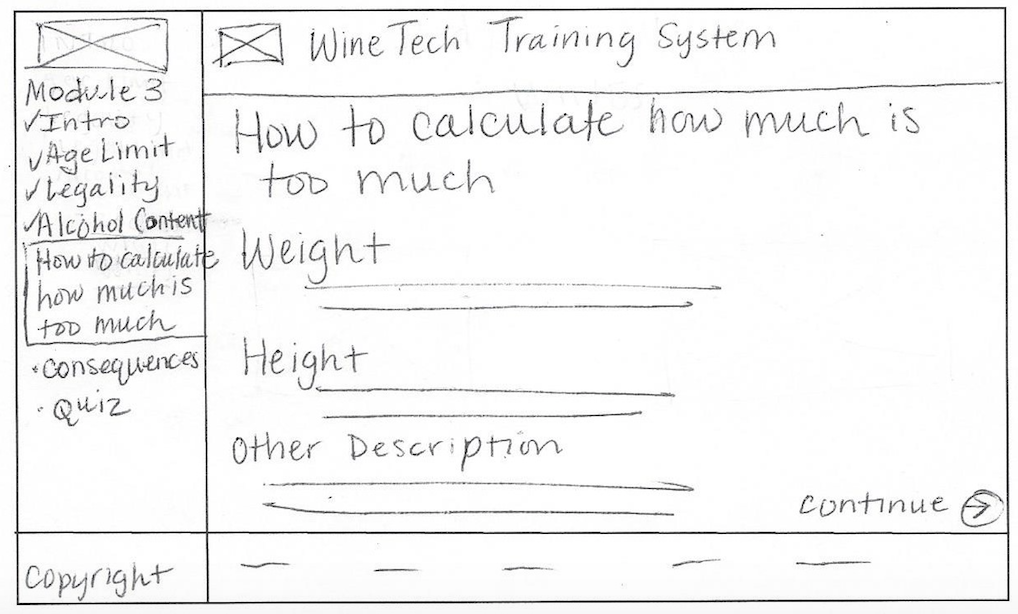 WineTech Training System
Module 3
✓Intro
✓Age Limit
✓Legality
✓Alcohol Content
How to calculate
how much is
too much
•Consequences
•Quiz
How to calculate how much is
too much
Weight
Height
Other Description
continue →
Copyright